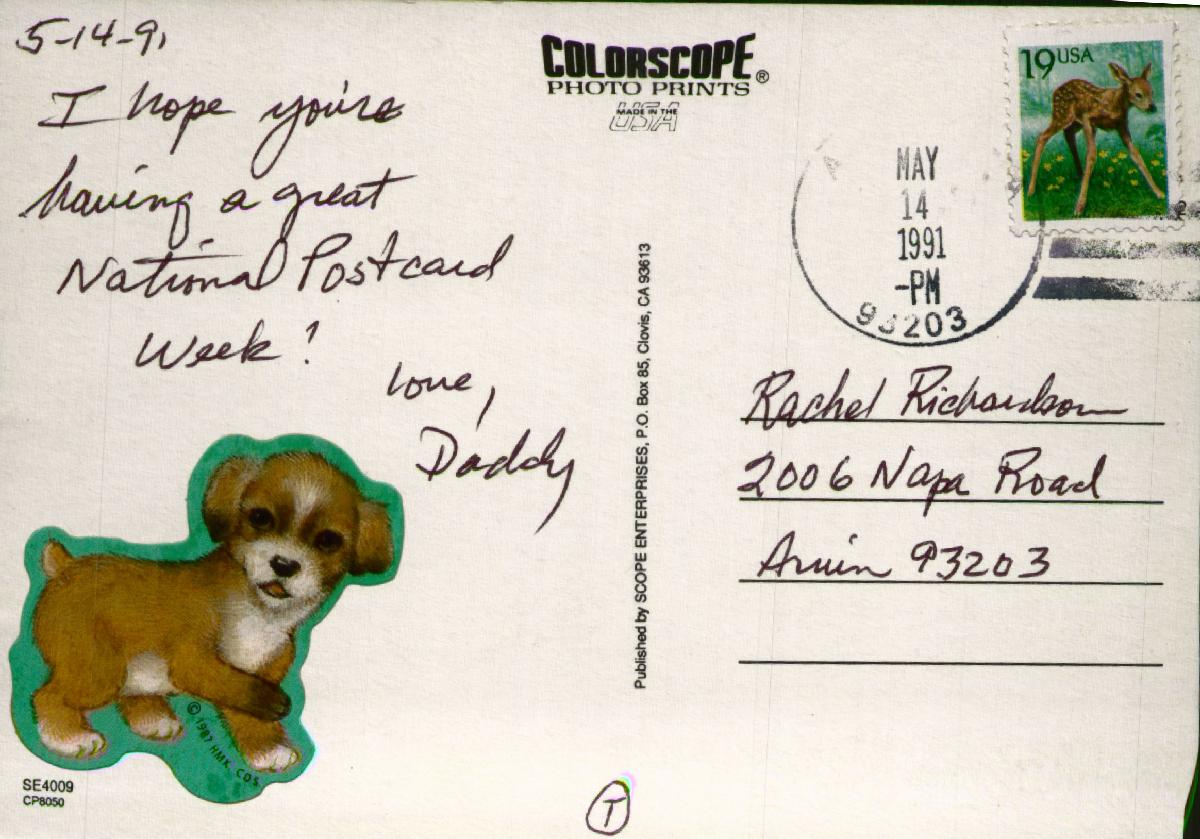 5-14-91
I hope you're
having a great
National Postcard
Week!
Love,
Daddy
© 1987 HMK. CDS
SE4009
CP8050
COLORSCOPE®
PHOTO PRINTS
MADE IN THE
USA
Published by SCOPE ENTERPRISES, P.O. Box 85, Clovis, CA 93613
T
19 USA
MAY
14
1991
-PM
93203
Rachel Richardson
2006 Napa Road
Arvin 93203